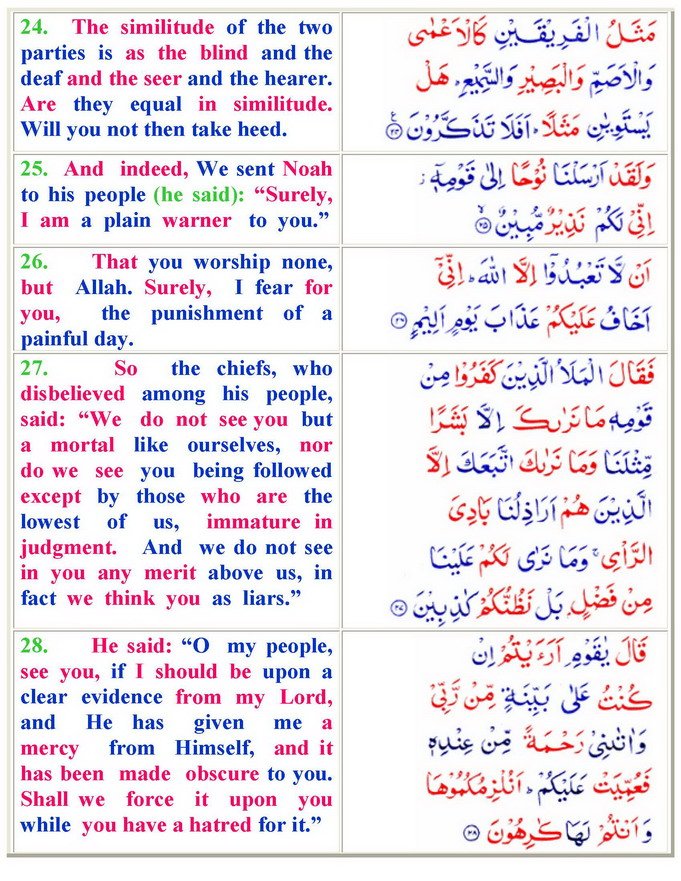 24. The similitude of the two
parties is as the blind and the
deaf and the seer and the hearer.
Are they equal in similitude.
Will you not then take heed.
مَثَلُ الْفَرِيْقَيْنِ كَالْاَعْمٰى
وَالْاَصَمِّ وَالْبَصِيْرِ وَالسَّمِيْعِ ؕ هَلْ
يَسْتَوِيٰنِ مَثَلًا ؕ اَفَلَا تَذَكَّرُوْنَ ۲۴
25. And indeed, We sent Noah
to his people (he said): “Surely,
I am a plain warner to you.”
وَلَقَدْ اَرْسَلْنَا نُوْحًا اِلٰى قَوْمِهٖۤ ز
اِنِّىْ لَكُمْ نَذِيْرٌ مُّبِيْنٌ ۲۵
26. That you worship none,
but Allah. Surely, I fear for
you, the punishment of a
painful day.
اَنْ لَّا تَعْبُدُوْۤا اِلَّا اللّٰهَ ؕ اِنِّىْۤ
اَخَافُ عَلَيْكُمْ عَذَابَ يَوْمٍ اَلِيْمٍ ۲۶
27. So the chiefs, who
disbelieved among his people,
said: “We do not see you but
a mortal like ourselves, nor
do we see you being followed
except by those who are the
lowest of us, immature in
judgment. And we do not see
in you any merit above us, in
fact we think you as liars.”
فَقَالَ الْمَلَاُ الَّذِيْنَ كَفَرُوْا مِنْ
قَوْمِهٖ مَا نَرٰٮكَ اِلَّا بَشَرًا
مِّثْلَنَا وَمَا نَرٰٮكَ اتَّبَعَكَ اِلَّا
الَّذِيْنَ هُمْ اَرَاذِلُنَا بَادِىَ
الرَّاْىِ ۚ وَمَا نَرٰى لَكُمْ عَلَيْنَا
مِنْ فَضْلٍۢ بَلْ نَظُنُّكُمْ كٰذِبِيْنَ ۲۷
28. He said: “O my people,
see you, if I should be upon a
clear evidence from my Lord,
and He has given me a
mercy from Himself, and it
has been made obscure to you.
Shall we force it upon you
while you have a hatred for it.”
قَالَ يٰقَوْمِ اَرَءَيْتُمْ اِنْ
كُنْتُ عَلٰى بَيِّنَةٍ مِّنْ رَّبِّىْ
وَاٰتٰٮنِىْ رَحْمَةً مِّنْ عِنْدِهٖ
فَعُمِّيَتْ عَلَيْكُمْ ؕ اَنُلْزِمُكُمُوْهَا
وَاَنْتُمْ لَهَا كٰرِهُوْنَ ۲۸